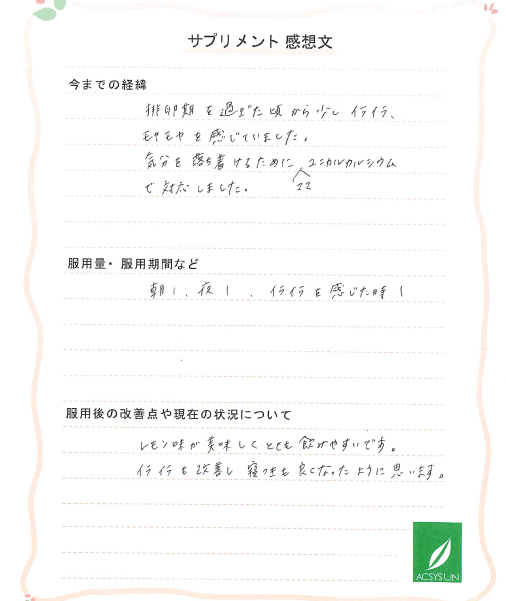 サプリメント 感想文
今までの経緯
排卵期を過ぎた頃から少しイライラ、
モヤモヤを感じていました。
気分を落ち着けるために、ユニカルカルシウム
で対応しました。 12
服用量・服用期間など
朝1、夜1、イライラを感じた時1
服用後の改善点や現在の状況について
レモン味が美味しくとても飲みやすいです。
イライラも改善し寝つきも良くなったように思います。
ACSYSUN